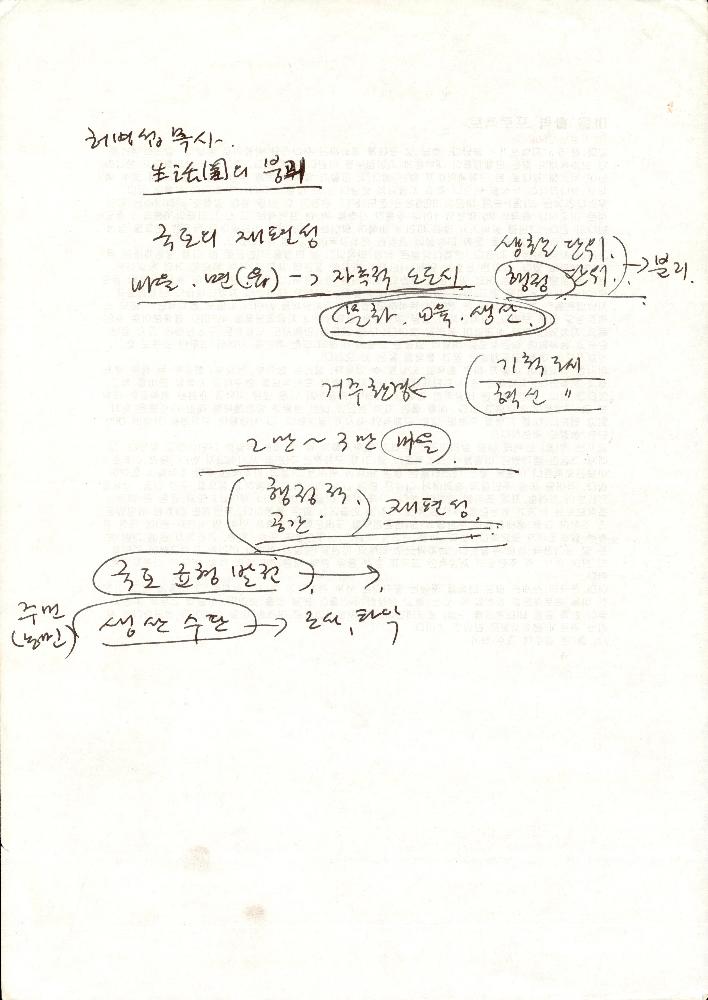 허병섭 목사.
生活圈의 붕괴
국토의 재편성
생활권 단위.
마을. 면(읍) -> 자족적 소도시 행정 단위. → 분리.
문화. 교육. 생산.
거주환경 ← 기획도시
혁신 〃
2만 ~ 3만 마을.
행정적
공간. 재편성.
국토 균형 발전 →
주민
(농민) 생산 수단 → 조사, 파악